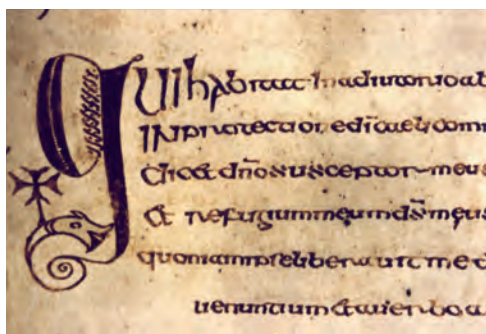 Qui habitat in adiutorio al
IN protectione di caeli comm
dicet dño susceptor meus
et refugium meum dš meus
quoniam ipse liberauit me d
uenantium et a uerbo a